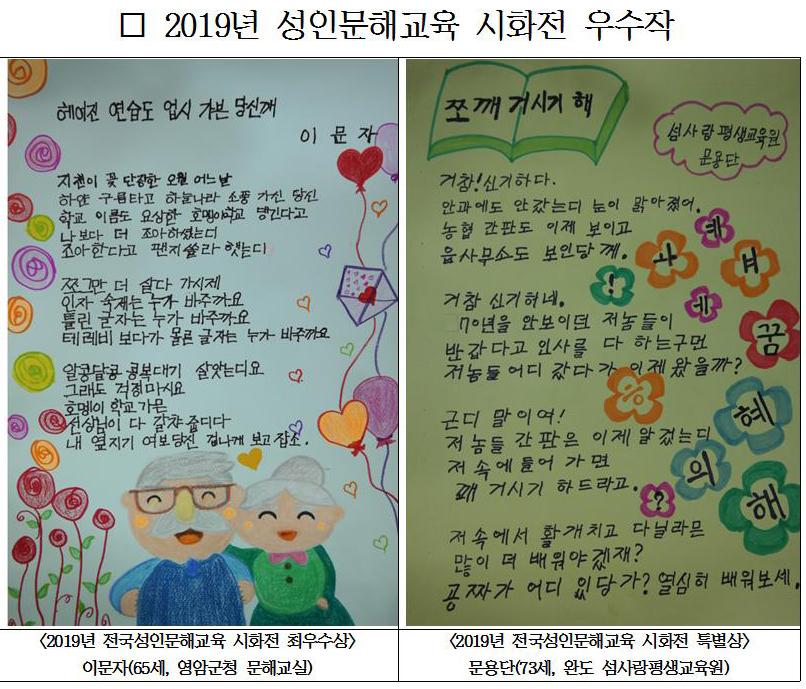 □ 2019년 성인문해교육 시화전 우수작
헤어진 연습도 업시 가븐 당신께
이 문 자
지천이 꽃 단장한 오월 어느날
하얀 구름타고 하늘나라 소풍 가신 당신
학교 이름도 요상한 호맹이학교 댕긴다고
나보다 더 조아하셨는디
조아한다고 팬지쏠라 햇는디
쪼그만 더 살다 가시제
인자 숙제는 누가 바주까요
틀린 글자는 누가 바주까요
테레비 보다가 몰른 글자는 누가 바주까요
알콩달콩 공복대기 살앗는디요
그래도 걱정마시요
호맹이 학교 가믄
선상님이 다 갈차 줍디다
내 옆지기 여보 당신 겁나게 보고 잡소.
쪼깨 거시기 해
섬사랑평생교육원
문용단
거참! 신기하다.
안과에도 안갔는디 눈이 맑아졌어.
농협 간판도 이제 보이고
읍사무소도 보인당께.
거참 신기허네.
70년을 안보이던 저놈들이
반갑다고 인사를 다 하는구먼
저놈들 어디 갔다가 이제 왔을까?
근디 말이여!
저놈들 간판은 이제 알겠는디
저 속에 들어 가면
꽤 거시기 하드라고.
저 속에서 활개치고 다닐라믄
많이 더 배워야겠재?
공짜가 어디 있당가? 열심히 배워보세.
!
?
꿈
혜
의
해
<2019년 전국성인문해교육 시화전 최우수상>
이문자(65세, 영암군청 문해교실)
<2019년 전국성인문해교육 시화전 특별상>
문용단(73세, 완도 섬사랑평생교육원)